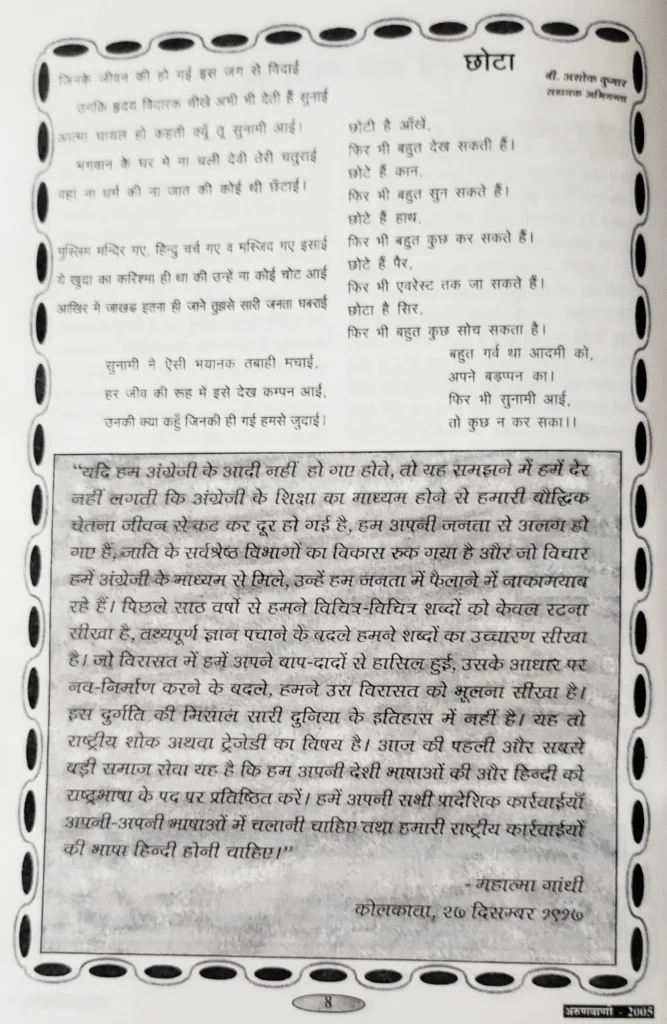 जिनके जीवन की हो गई इस जग से विदाई
उनकि हृदय विदारक चीखें अभी भी देती हैं सुनाई
आत्मा घायल हो कहती क्यूँ तू सुनामी आई।
भगवान के घर में ना चली देवी तेरी चतुराई
वहां ना धर्म की ना जात की कोई थी छँटाई।
मुस्लिम मन्दिर गए, हिन्दु चर्च गए व मस्जिद गए इसाई
ये खुदा का करिश्मा ही था की उन्हें ना कोई चोट आई
आखिर में जाखड़ इतना ही जाने तुझसे सारी जनता घबराई
सुनामी ने ऐसी भयानक तबाही मचाई,
हर जीव की रूह में इसे देख कम्पन आई,
उनकी क्या कहुँ जिनकी ही गई हमसे जुदाई।
छोटा
वी. अशोक कुमार
सहायक अभियन्ता
छोटी है आँखें,
फिर भी बहुत देख सकती हैं।
छोटे हैं कान,
फिर भी बहुत सुन सकते हैं।
छोटे हैं हाथ,
फिर भी बहुत कुछ कर सकते हैं।
छोटे हैं पैर,
फिर भी एवरेस्ट तक जा सकते हैं।
छोटा है सिर,
फिर भी बहुत कुछ सोच सकता है।
बहुत गर्व था आदमी को,
अपने बड़प्पन का।
फिर भी सुनामी आई,
तो कुछ न कर सका।।
“यदि हम अंग्रेजी के आदी नहीं हो गए होते, तो यह समझने में हमें देर
नहीं लगती कि अंग्रेजी के शिक्षा का माध्यम होने से हमारी बौद्धिक
चेतना जीवन से कट कर दूर हो गई है, हम अपनी जनता से अलग हो
गए हैं, जाति के सर्वश्रेष्ठ विभागों का विकास रुक गया है और जो विचार
हमें अंग्रेजी के माध्यम से मिले, उन्हें हम जनता में फैलाने में नाकामयाब
रहे हैं। पिछले साठ वर्षो से हमने विचित्र-विचित्र शब्दों को केवल रटना
सीखा है, तथ्यपूर्ण ज्ञान पचाने के बदले हमने शब्दों का उच्चारण सीखा
है। जो विरासत में हमें अपने बाप-दादों से हासिल हुई, उसके आधार पर
नव-निर्माण करने के बदले, हमने उस विरासत को भूलना सीखा है।
इस दुर्गति की मिसाल सारी दुनिया के इतिहास में नहीं है। यह तो
राष्ट्रीय शोक अथवा ट्रेजेडी का विषय है। आज की पहली और सबसे
बड़ी समाज सेवा यह है कि हम अपनी देशी भाषाओं की और हिन्दी को
राष्ट्रभाषा के पद पर प्रतिष्ठित करें। हमें अपनी सभी प्रादेशिक कार्रवाईयाँ
अपनी-अपनी भाषाओं में चलानी चाहिए तथा हमारी राष्ट्रीय कार्रवाईयों
की भाषा हिन्दी होनी चाहिए।”
- महात्मा गांधी
कोलकाता, २७ दिसम्बर १९१७
8
अरुणवाणी - 2005